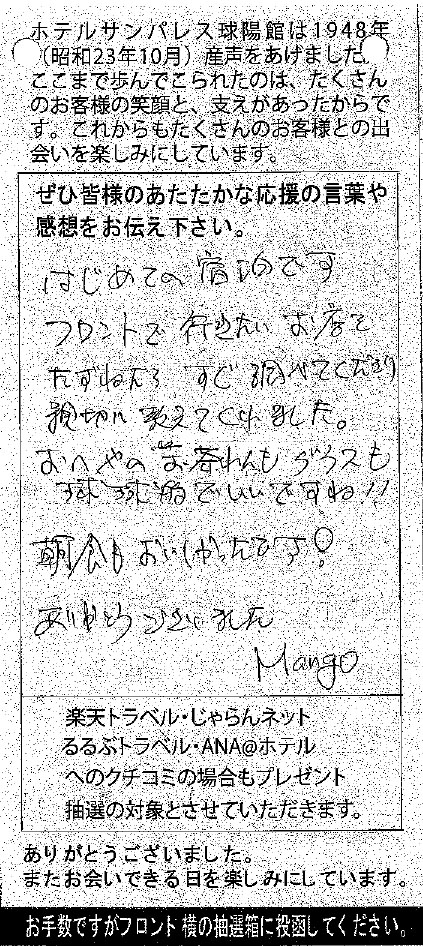 ホテルサンパレス球陽館は1948年
（昭和23年10月）産声をあげました。
ここまで歩んでこられたのは、たくさん
のお客様の笑顔と、支えがあったからで
す。これからもたくさんのお客様との出
会いを楽しみにしています。
ぜひ皆様のあたたかな応援の言葉や
感想をお伝え下さい。
はじめての宿泊です
フロントで行きたいお店を
たずねたら すぐ調べてくださり
親切に教えてくれました。
おへやのお茶わんもグラスも
琉球的でいいですね!!
朝食もおいしかったです!
ありがとうございました
Mango
楽天トラベル・じゃらんネット
るるぶトラベル・ANA@ホテル
へのクチコミの場合もプレゼント
抽選の対象とさせていただきます。
ありがとうございました。
またお会いできる日を楽しみにしています。
お手数ですがフロント横の抽選箱に投函してください。